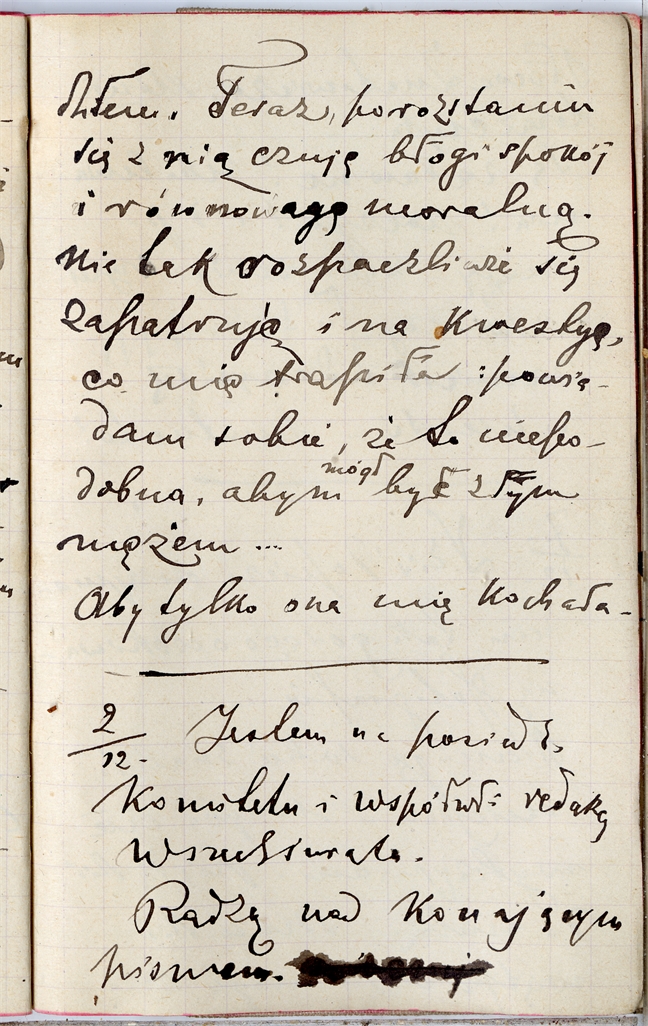 Teraz, po rozstaniu
się z nią czuję błogi spokój
i równowagę moralną.
Nie tak rozpaczliwie się
zapatruję i na kwestyę,
co mię trapiła: powia-
dam sobie, że to niepo-
dobna, abym mógł być złym
mężem...
Aby tylko ona mię kochała.
2/12. Jestem na posiedz.
Komitetu i współwł: redakcy
Wszechświata.
Radzą nad konającym
pismem.